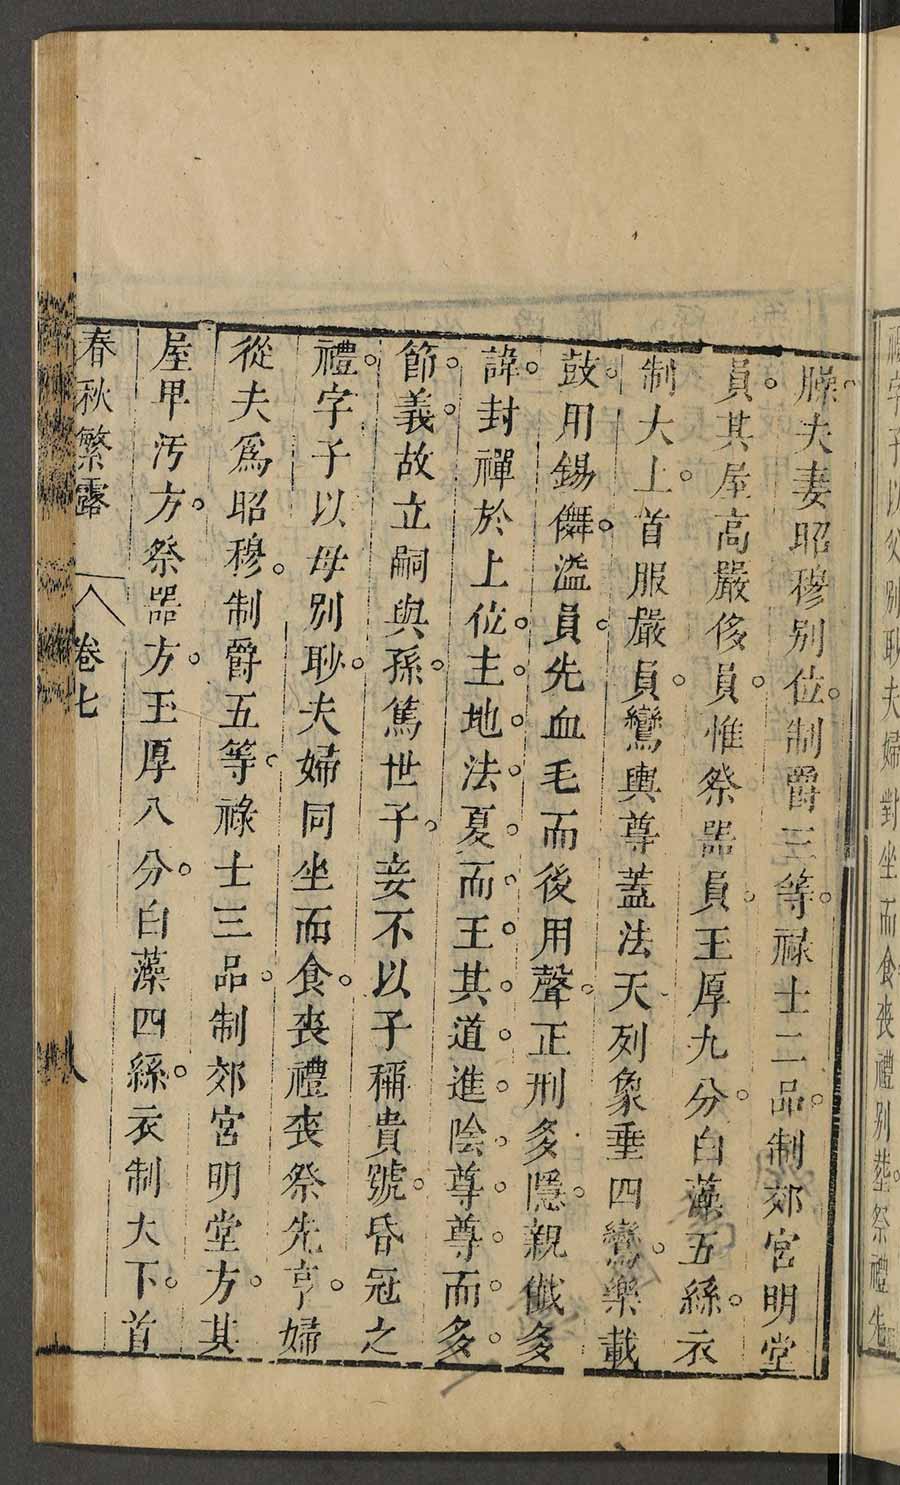 臊夫妻昭穆別位制爵三等祿士二品制郊宮明堂
員其屋高嚴侈員惟祭器員玉厚九分白藻五絲衣
制大上首服嚴員鸞輿尊蓋法天列象垂四鸞樂載
鼓用錫儛溢員先血毛而後用聲正刑多隱親㦰多
諱封禪於上位主地法夏而王其道進陰尊尊而多
節義故立嗣與孫篤世子妾不以子稱貴號昏冠之
禮字子以母別眇夫婦同坐而食喪禮喪祭先亨婦
從夫爲昭穆制爵五等祿士三品制郊宮明堂方其
屋卑汚方祭器方玉厚八分白藻四絲衣制大下首
春秋繁露 卷七 八
禮字子以父別眇夫婦對坐而食喪禮別葬祭禮先